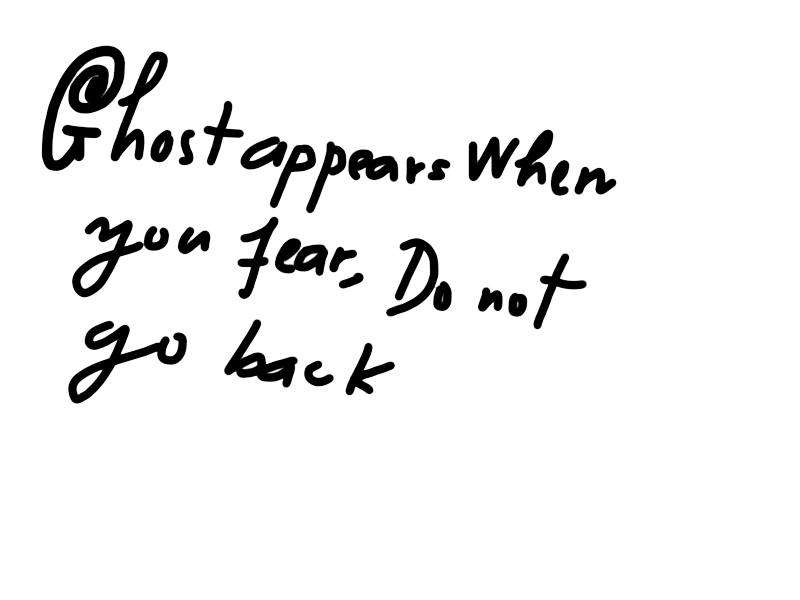 Ghost appears When
you fear, Do not
go back